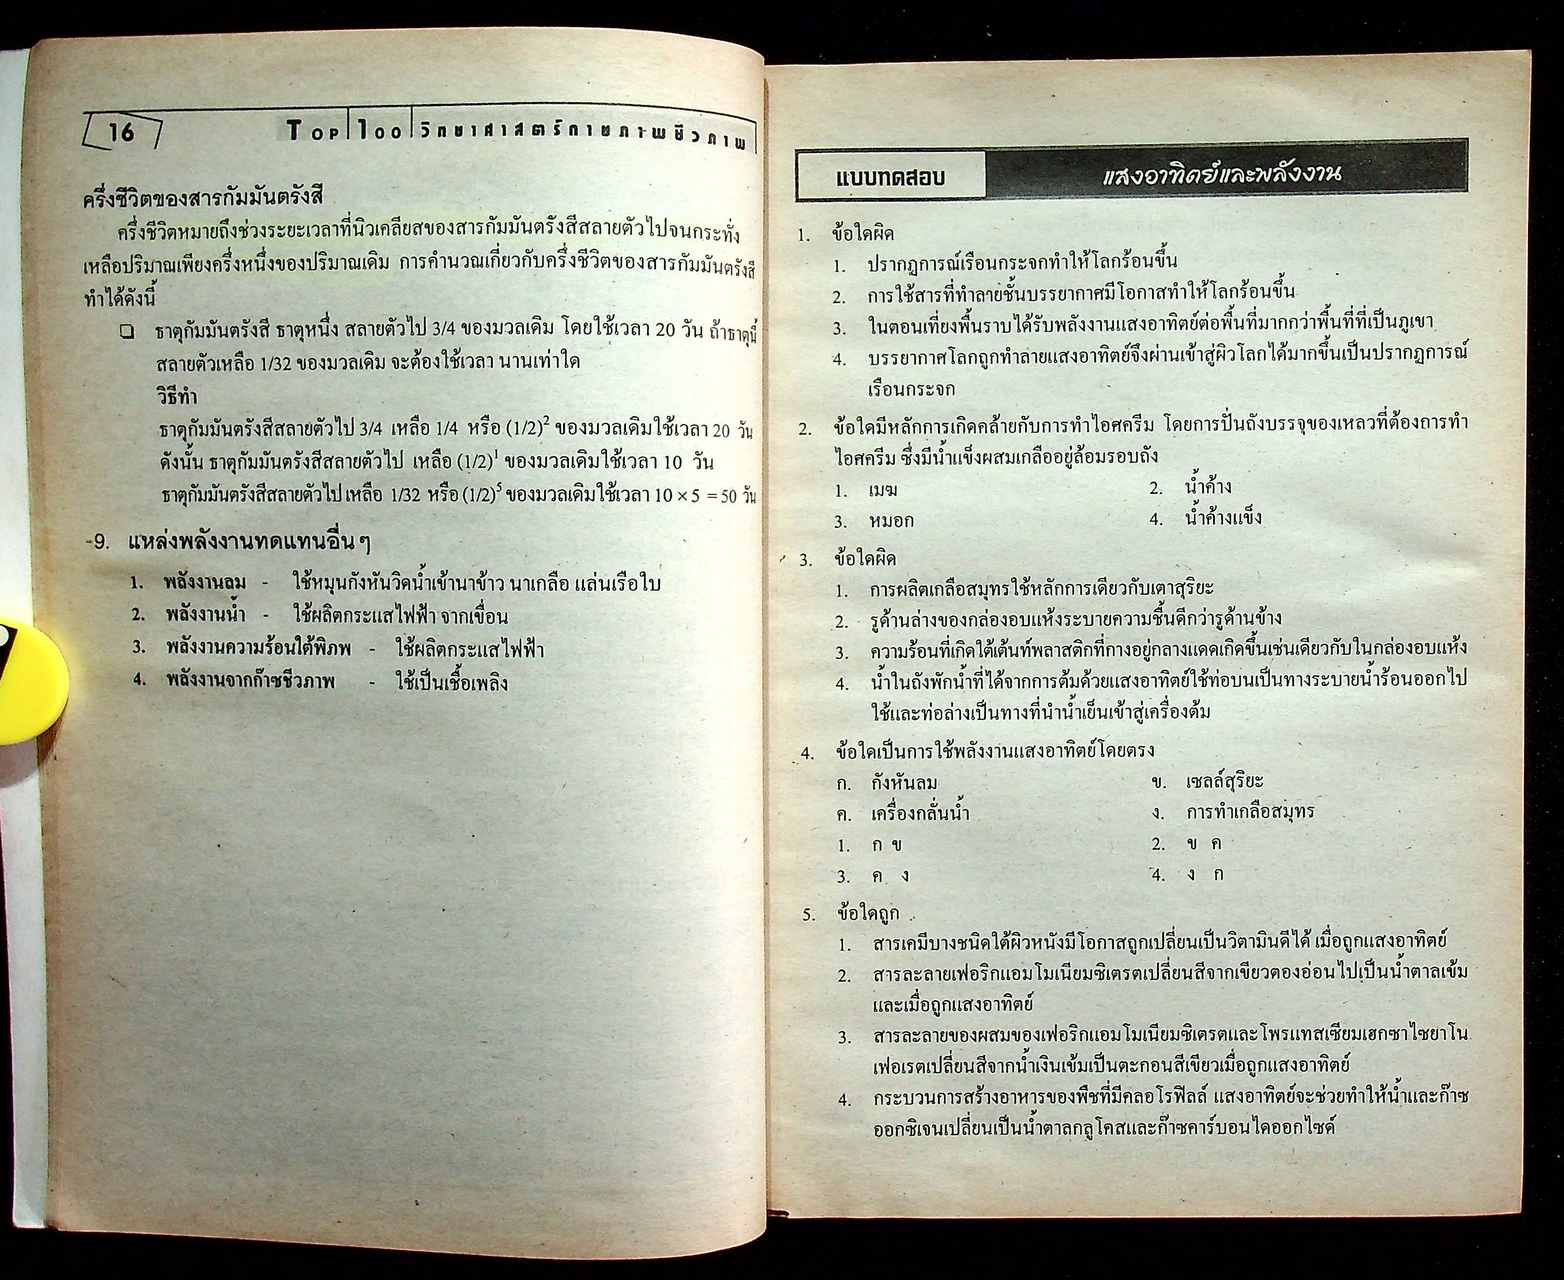 16
TOP 100 วิทยาศาสตร์กายภาพชีวภาพ
ครึ่งชีวิตของสารกัมมันตรังสี
ครึ่งชีวิตหมายถึงช่วงระยะเวลาที่นิวเคลียสของสารกัมมันตรังสีสลายตัวไปจนกระทั่ง
เหลือปริมาณเพียงครึ่งหนึ่งของปริมาณเดิม การคำนวณเกี่ยวกับครึ่งชีวิตของสารกัมมันตรังสี
ทำได้ดังนี้
❑ ธาตุกัมมันตรังสี ธาตุหนึ่ง สลายตัวไป 3/4 ของมวลเดิม โดยใช้เวลา 20 วัน ถ้าธาตุนี้
สลายตัวเหลือ 1/32 ของมวลเดิม จะต้องใช้เวลา นานเท่าใด
วิธีทำ
ธาตุกัมมันตรังสีสลายตัวไป 3/4 เหลือ 1/4 หรือ (1/2)² ของมวลเดิมใช้เวลา 20 วัน
ดังนั้น ธาตุกัมมันตรังสีสลายตัวไป เหลือ (1/2)¹ ของมวลเดิมใช้เวลา 10 วัน
ธาตุกัมมันตรังสีสลายตัวไป เหลือ 1/32 หรือ (1/2)⁵ ของมวลเดิมใช้เวลา 10 × 5 = 50 วัน
-9. แหล่งพลังงานทดแทนอื่นๆ
1. พลังงานลม - ใช้หมุนกังหันวิดน้ำเข้านาข้าว นาเกลือ แล่นเรือใบ
2. พลังงานน้ำ - ใช้ผลิตกระแสไฟฟ้า จากเขื่อน
3. พลังงานความร้อนใต้พิภพ - ใช้ผลิตกระแสไฟฟ้า
4. พลังงานจากก๊าซชีวภาพ - ใช้เป็นเชื้อเพลิง
แบบทดสอบ แสงอาทิตย์และพลังงาน
1. ข้อใดผิด
1. ปรากฏการณ์เรือนกระจกทำให้โลกร้อนขึ้น
2. การใช้สารที่ทำลายชั้นบรรยากาศมีโอกาสทำให้โลกร้อนขึ้น
3. ในตอนเที่ยงพื้นราบได้รับพลังงานแสงอาทิตย์ต่อพื้นที่มากกว่าพื้นที่ที่เป็นภูเขา
4. บรรยากาศโลกถูกทำลายแสงอาทิตย์จึงผ่านเข้าสู่ผิวโลกได้มากขึ้นเป็นปรากฏการณ์
เรือนกระจก
2. ข้อใดมีหลักการเกิดคล้ายกับการทำไอศครีม โดยการปั่นถังบรรจุของเหลวที่ต้องการทำ
ไอศครีม ซึ่งมีน้ำแข็งผสมเกลืออยู่ล้อมรอบถัง
1. เมฆ 2. น้ำค้าง
3. หมอก 4. น้ำค้างแข็ง
3. ข้อใดผิด
1. การผลิตเกลือสมุทรใช้หลักการเดียวกับเตาสุริยะ
2. รูด้านล่างของกล่องอบแห้งระบายความชื้นดีกว่ารูด้านข้าง
3. ความร้อนที่เกิดใต้เต้นท์พลาสติกที่กางอยู่กลางแดดเกิดขึ้นเช่นเดียวกับในกล่องอบแห้ง
4. น้ำในถังพักน้ำที่ได้จากการต้มด้วยแสงอาทิตย์ใช้ท่อบนเป็นทางระบายน้ำร้อนออกไป
ใช้และท่อล่างเป็นทางที่นำน้ำเย็นเข้าสู่เครื่องต้ม
4. ข้อใดเป็นการใช้พลังงานแสงอาทิตย์โดยตรง
ก. กังหันลม ข. เซลล์สุริยะ
ค. เครื่องกลั่นน้ำ ง. การทำเกลือสมุทร
1. ก ข 2. ข ค
3. ค ง 4. ง ก
5. ข้อใดถูก
1. สารเคมีบางชนิดใต้ผิวหนังมีโอกาสถูกเปลี่ยนเป็นวิตามินดีได้ เมื่อถูกแสงอาทิตย์
2. สารละลายเฟอริกแอมโมเนียมซิเตรตเปลี่ยนสีจากเขียวตองอ่อนไปเป็นน้ำตาลเข้ม
และเมื่อถูกแสงอาทิตย์
3. สารละลายของผสมของเฟอริกแอมโมเนียมซิเตรตและโพรแทสเซียมเฮกซาไซยาโน
เฟอเรตเปลี่ยนสีจากน้ำเงินเข้มเป็นตะกอนสีเขียวเมื่อถูกแสงอาทิตย์
4. กระบวนการสร้างอาหารของพืชที่มีคลอโรฟิลล์ แสงอาทิตย์จะช่วยทำให้น้ำและก๊าซ
ออกซิเจนเปลี่ยนเป็นน้ำตาลกลูโคสและก๊าซคาร์บอนไดออกไซด์